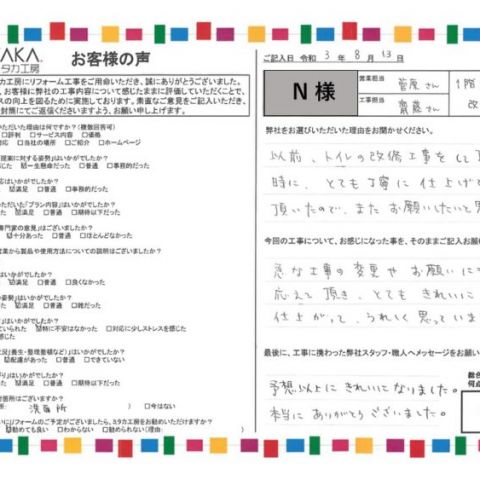 AKA
タカ工房
お客様の声
工房にリフォーム工事をご用命いただき、誠にありがとうございました。
、お客様に弊社の工事内容について感じたままに評価していただくことで、
スの向上を図るために実施しております。素直なご意見をご記入いただき、
封筒にてご返信くださいますよう、お願い申し上げます。
いただいた理由は何ですか?(複数回答可)
□評判 □サービス内容 □価格
対応 □当社の場所 □ご紹介 □ホームページ
提案に対する姿勢」はいかがでしたか?
□一生懸命だった □普通 □事務的だった
応はいかがでしたか?
☑満足 □普通 □事務的だった
いただいた「プラン内容」はいかがでしたか?
☑満足 □普通 □期待以下だった
専門家の意見」はございましたか?
☑十分あった □普通 □ほとんどなかった
営業から製品や使用方法についての説明はございましたか?
はいかがでしたか?
☑満足 □普通 □良くなかった
の姿勢」はいかがでしたか?
☑満足 □普通 □雑だった
」はいかがでしたか?
ていられた ☑特に不安はなかった □対応に少しストレスを感じた
感じた
状況」(養生・整理整頓など)」はいかがでしたか?
☑配慮があった □普通 □できていない
がり」はいかがでしたか?
☑満足 □普通 □期待以下だった
討箇所はございますか?
所: 洗面所 ) □今はない
にリフォームのご予定がございましたら、ユタカ工房をお勧めいただけますか?
☑勧めても良い □わからない □勧められない(理由:
ご記入日 令和 3 年 8 月 13 日
N 様
営業担当 菅原さん
工事担当 齋藤さん
1階
改
弊社をお選びいただいた理由をお聞かせください。
以前、トイレの改修工事をして
時に、とても丁寧に仕上げて
頂いたので、またお願いしたいと
今回の工事について、お感じになった事を、そのままご記入お願
急な工事の変更やお願いに
応えて頂き、とてもきれいに
仕上がって、うれしく思っていま
最後に、工事に携わった弊社スタッフ・職人へメッセージをお願い
予想以上にきれいになりました。
本当にありがとうございました。
総合
何点